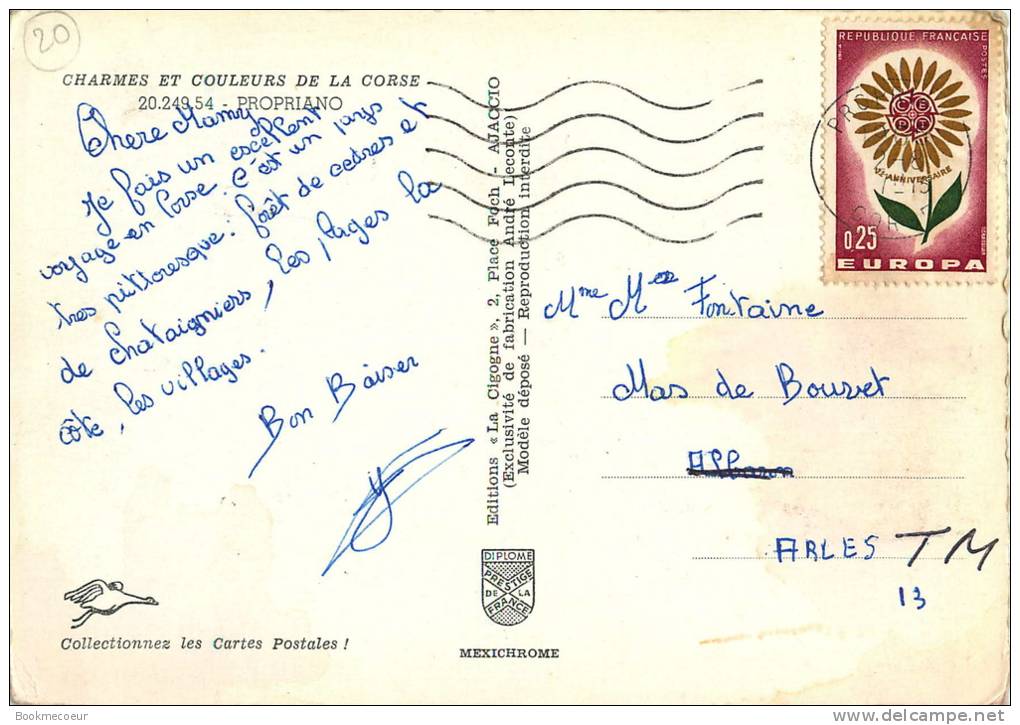 20
CHARMES ET COULEURS DE LA CORSE
20.249.54 - PROPRIANO
Chere Mamy
Je fais un excellent
voyage en Corse. C'est un pays
très pittoresque: forêt de cedres et
de chataigniers, les plages la
côte, les villages.
Bon Baiser
Collectionnez les Cartes Postales !
Editions « La Cigogne », 2, Place Foch - AJACCIO
(Exclusivité de fabrication André Leconte)
Modèle déposé — Reproduction interdite
DIPLOME
PRESTIGE
DE LA
FRANCE
MEXICHROME
REPUBLIQUE FRANÇAISE
POSTES
CEPT
Ve ANNIVERSAIRE
0,25
EUROPA
Mme Fontaine
Mas de Bouvet
ARLES TM
13
Bookmecoeur